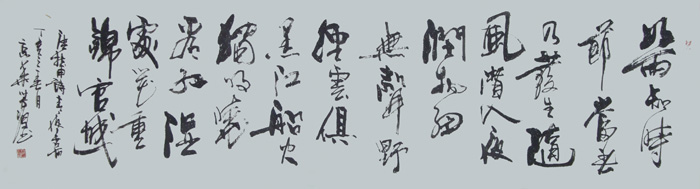 好雨知時
節當春
乃發生隨
風潛入夜
潤物細
無聲野
徑雲俱
黑江船火
獨明曉
看紅濕
處花重
錦官城
杜甫詩春夜喜雨
丁亥春月